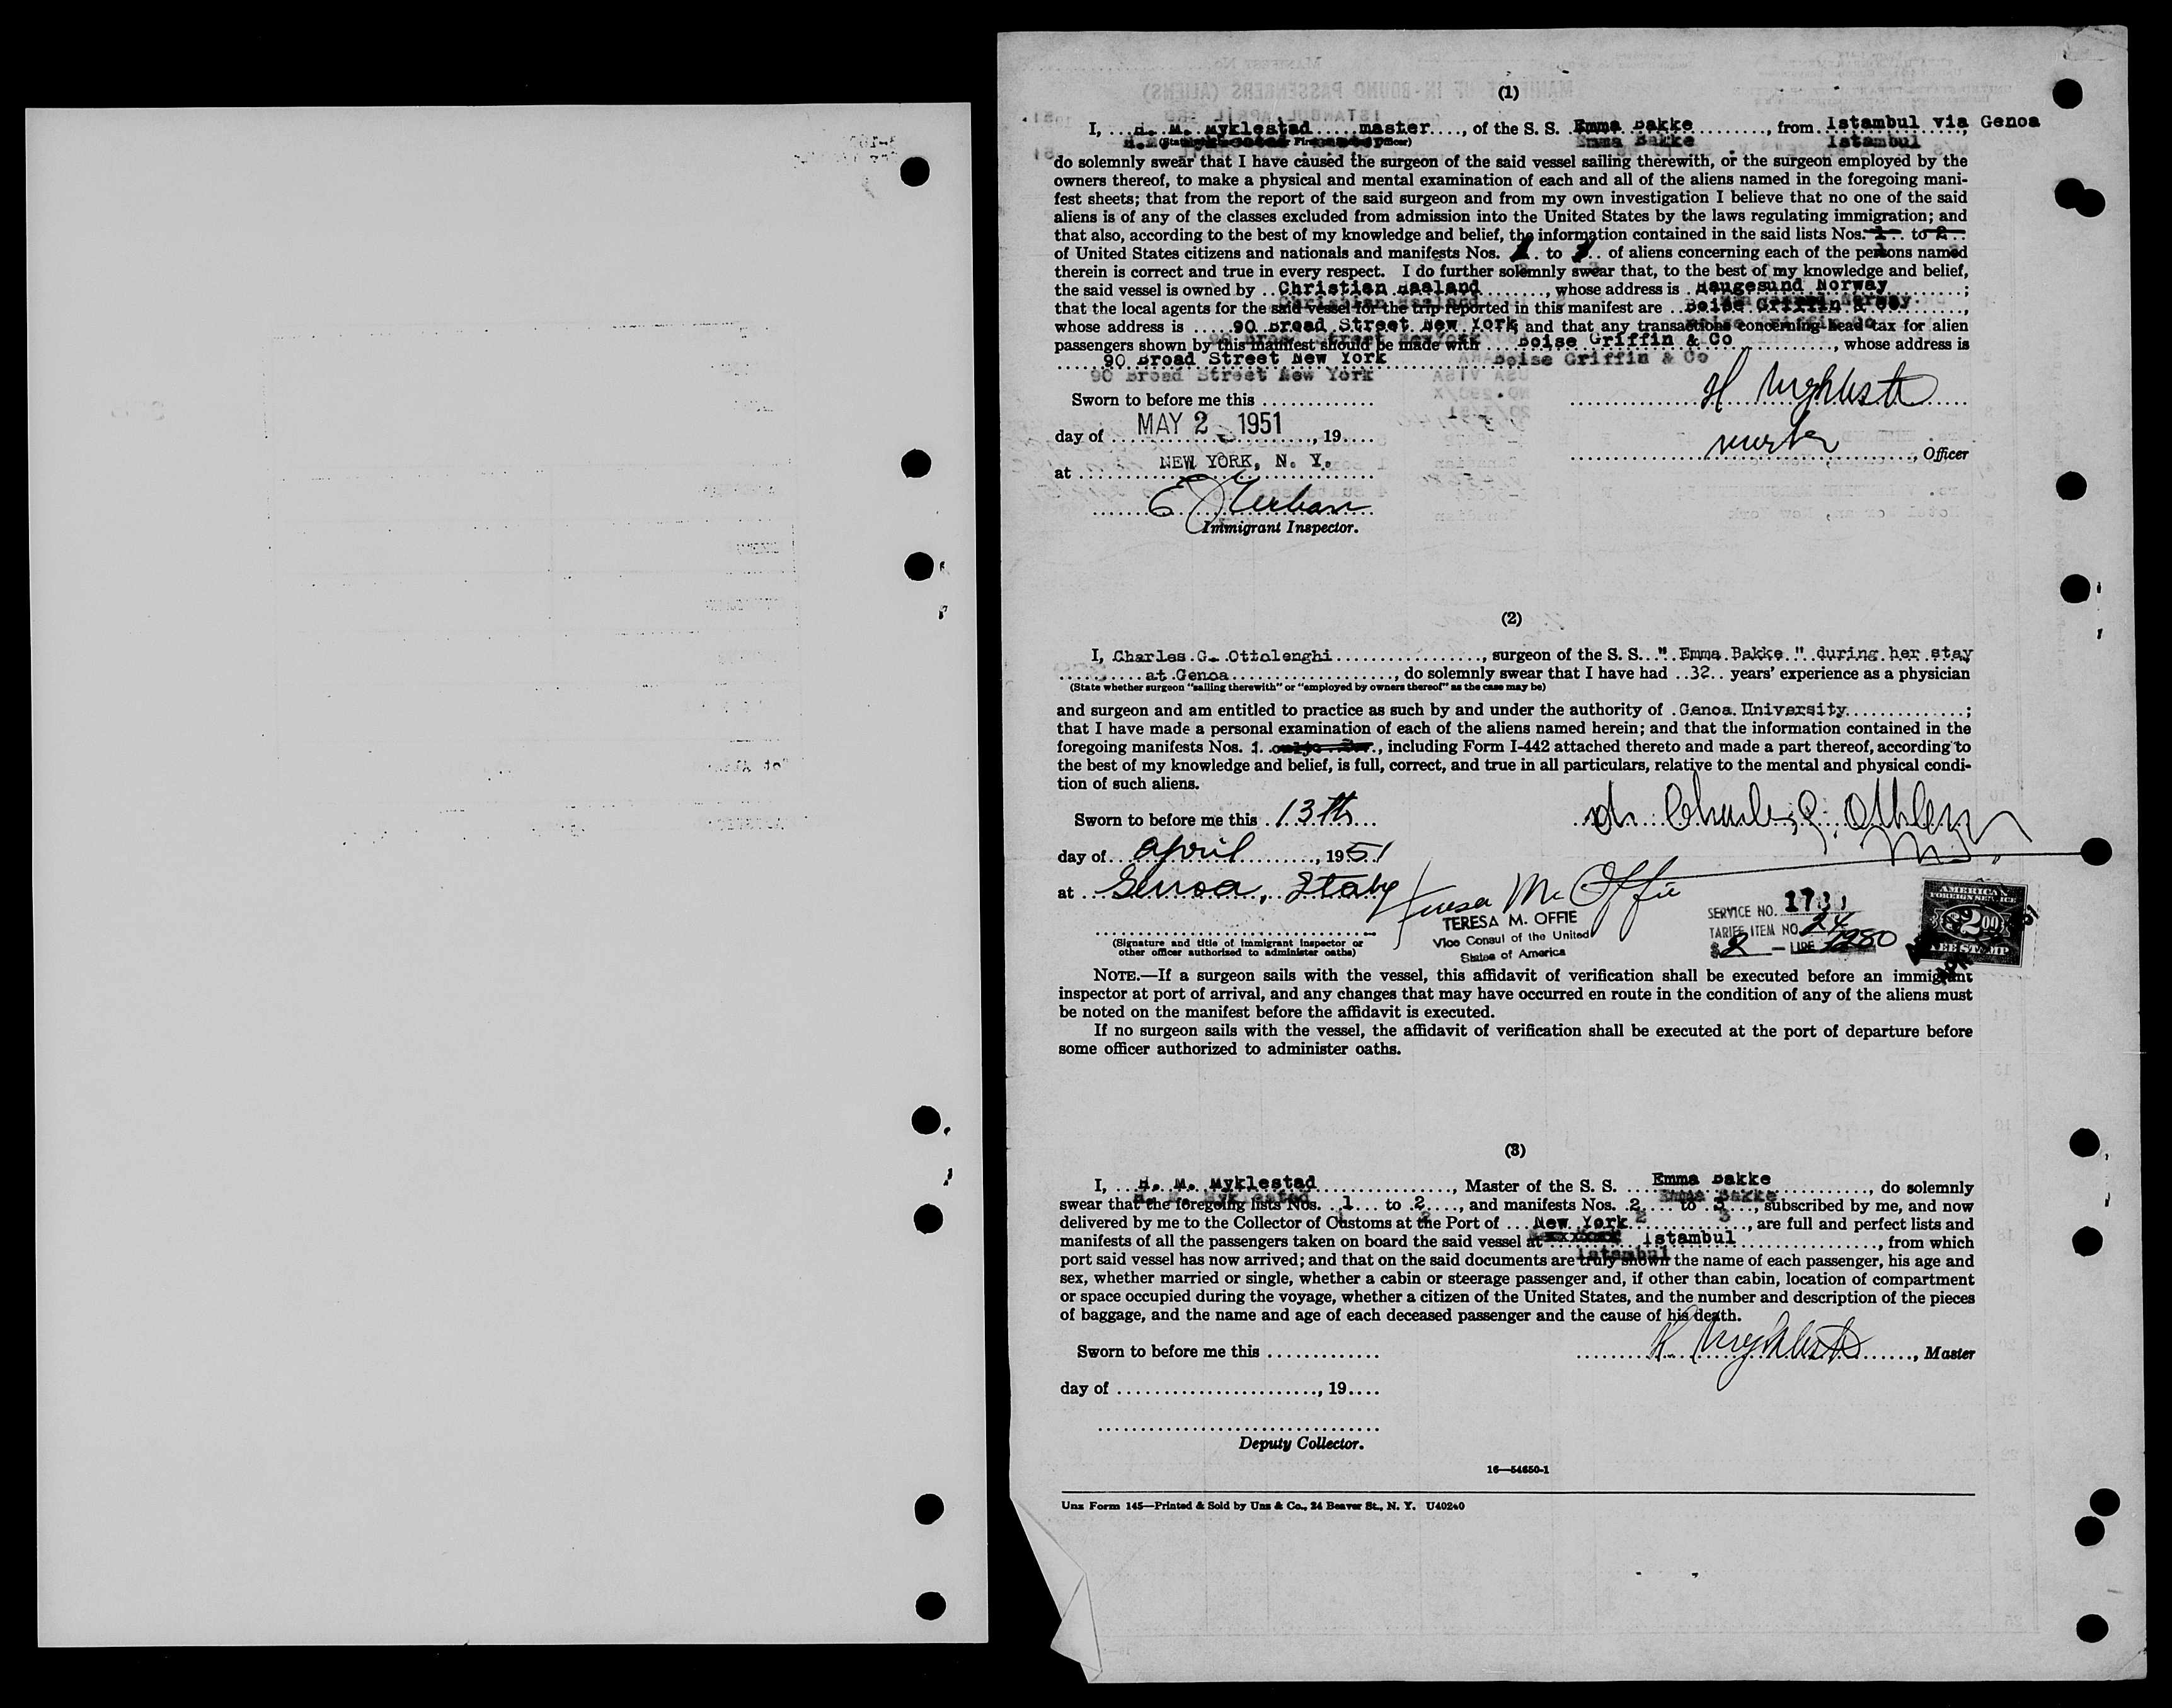 (1)
I, H. M. Myklestad master, of the S. S. Emma Bakke, from Istambul via Genoa
Emma Bakke Istambul
do solemnly swear that I have caused the surgeon of the said vessel sailing therewith, or the surgeon employed by the
owners thereof, to make a physical and mental examination of each and all of the aliens named in the foregoing mani-
fest sheets; that from the report of the said surgeon and from my own investigation I believe that no one of the said
aliens is of any of the classes excluded from admission into the United States by the laws regulating immigration; and
that also, according to the best of my knowledge and belief, the information contained in the said lists Nos. 1 to 2
of United States citizens and nationals and manifests Nos. to of aliens concerning each of the persons named
therein is correct and true in every respect. I do further solemnly swear that, to the best of my knowledge and belief,
the said vessel is owned by Christian Haaland, whose address is Haugesund Norway;
that the local agents for the said vessel for the trip reported in this manifest are Boise Griffin & Co.,
whose address is 90 Broad Street New York, and that any transactions concerning head tax for alien
passengers shown by this manifest should be made with Boise Griffin & Co, whose address is
90 Broad Street New York Boise Griffin & Co
90 Broad Street New York
Sworn to before me this
H Myklestad
day of MAY 2 1951, 19
master, Officer
at NEW YORK, N. Y.
Immigrant Inspector.
(2)
I, Charles G. Ottolenghi, surgeon of the S. S. " Emma Bakke " during her stay
at Genoa, do solemnly swear that I have had 32 years' experience as a physician
(State whether surgeon "sailing therewith" or "employed by owners thereof" as the case may be)
and surgeon and am entitled to practice as such by and under the authority of Genoa University;
that I have made a personal examination of each of the aliens named herein; and that the information contained in the
foregoing manifests Nos. 1, including Form I-442 attached thereto and made a part thereof, according to
the best of my knowledge and belief, is full, correct, and true in all particulars, relative to the mental and physical condi-
tion of such aliens.
Sworn to before me this 13th
dr. Charles G. Ottolenghi
day of April, 1951
at Genoa, Italy
Teresa M. Offie
TERESA M. OFFIE
Vice Consul of the United
States of America
SERVICE NO. 1731
TARIFF ITEM NO. 24
$ 2 — LIRE 1280
AMERICAN
FOREIGN SERVICE
$2.00
FEE STAMP
(Signature and title of immigrant inspector or
other officer authorized to administer oaths)
NOTE.—If a surgeon sails with the vessel, this affidavit of verification shall be executed before an immigrant
inspector at port of arrival, and any changes that may have occurred en route in the condition of any of the aliens must
be noted on the manifest before the affidavit is executed.
If no surgeon sails with the vessel, the affidavit of verification shall be executed at the port of departure before
some officer authorized to administer oaths.
(3)
I, H. M. Myklestad, Master of the S. S. Emma Bakke, do solemnly
swear that the foregoing lists Nos. 1 to 2, and manifests Nos. 2 to 3, subscribed by me, and now
delivered by me to the Collector of Customs at the Port of New York, are full and perfect lists and
manifests of all the passengers taken on board the said vessel at Istambul, from which
port said vessel has now arrived; and that on the said documents are truly shown the name of each passenger, his age and
sex, whether married or single, whether a cabin or steerage passenger and, if other than cabin, location of compartment
or space occupied during the voyage, whether a citizen of the United States, and the number and description of the pieces
of baggage, and the name and age of each deceased passenger and the cause of his death.
Sworn to before me this
H. Myklestad, Master
day of, 19
Deputy Collector.
16—54650-1
Unz Form 145—Printed & Sold by Unz & Co., 24 Beaver St., N. Y. U40240